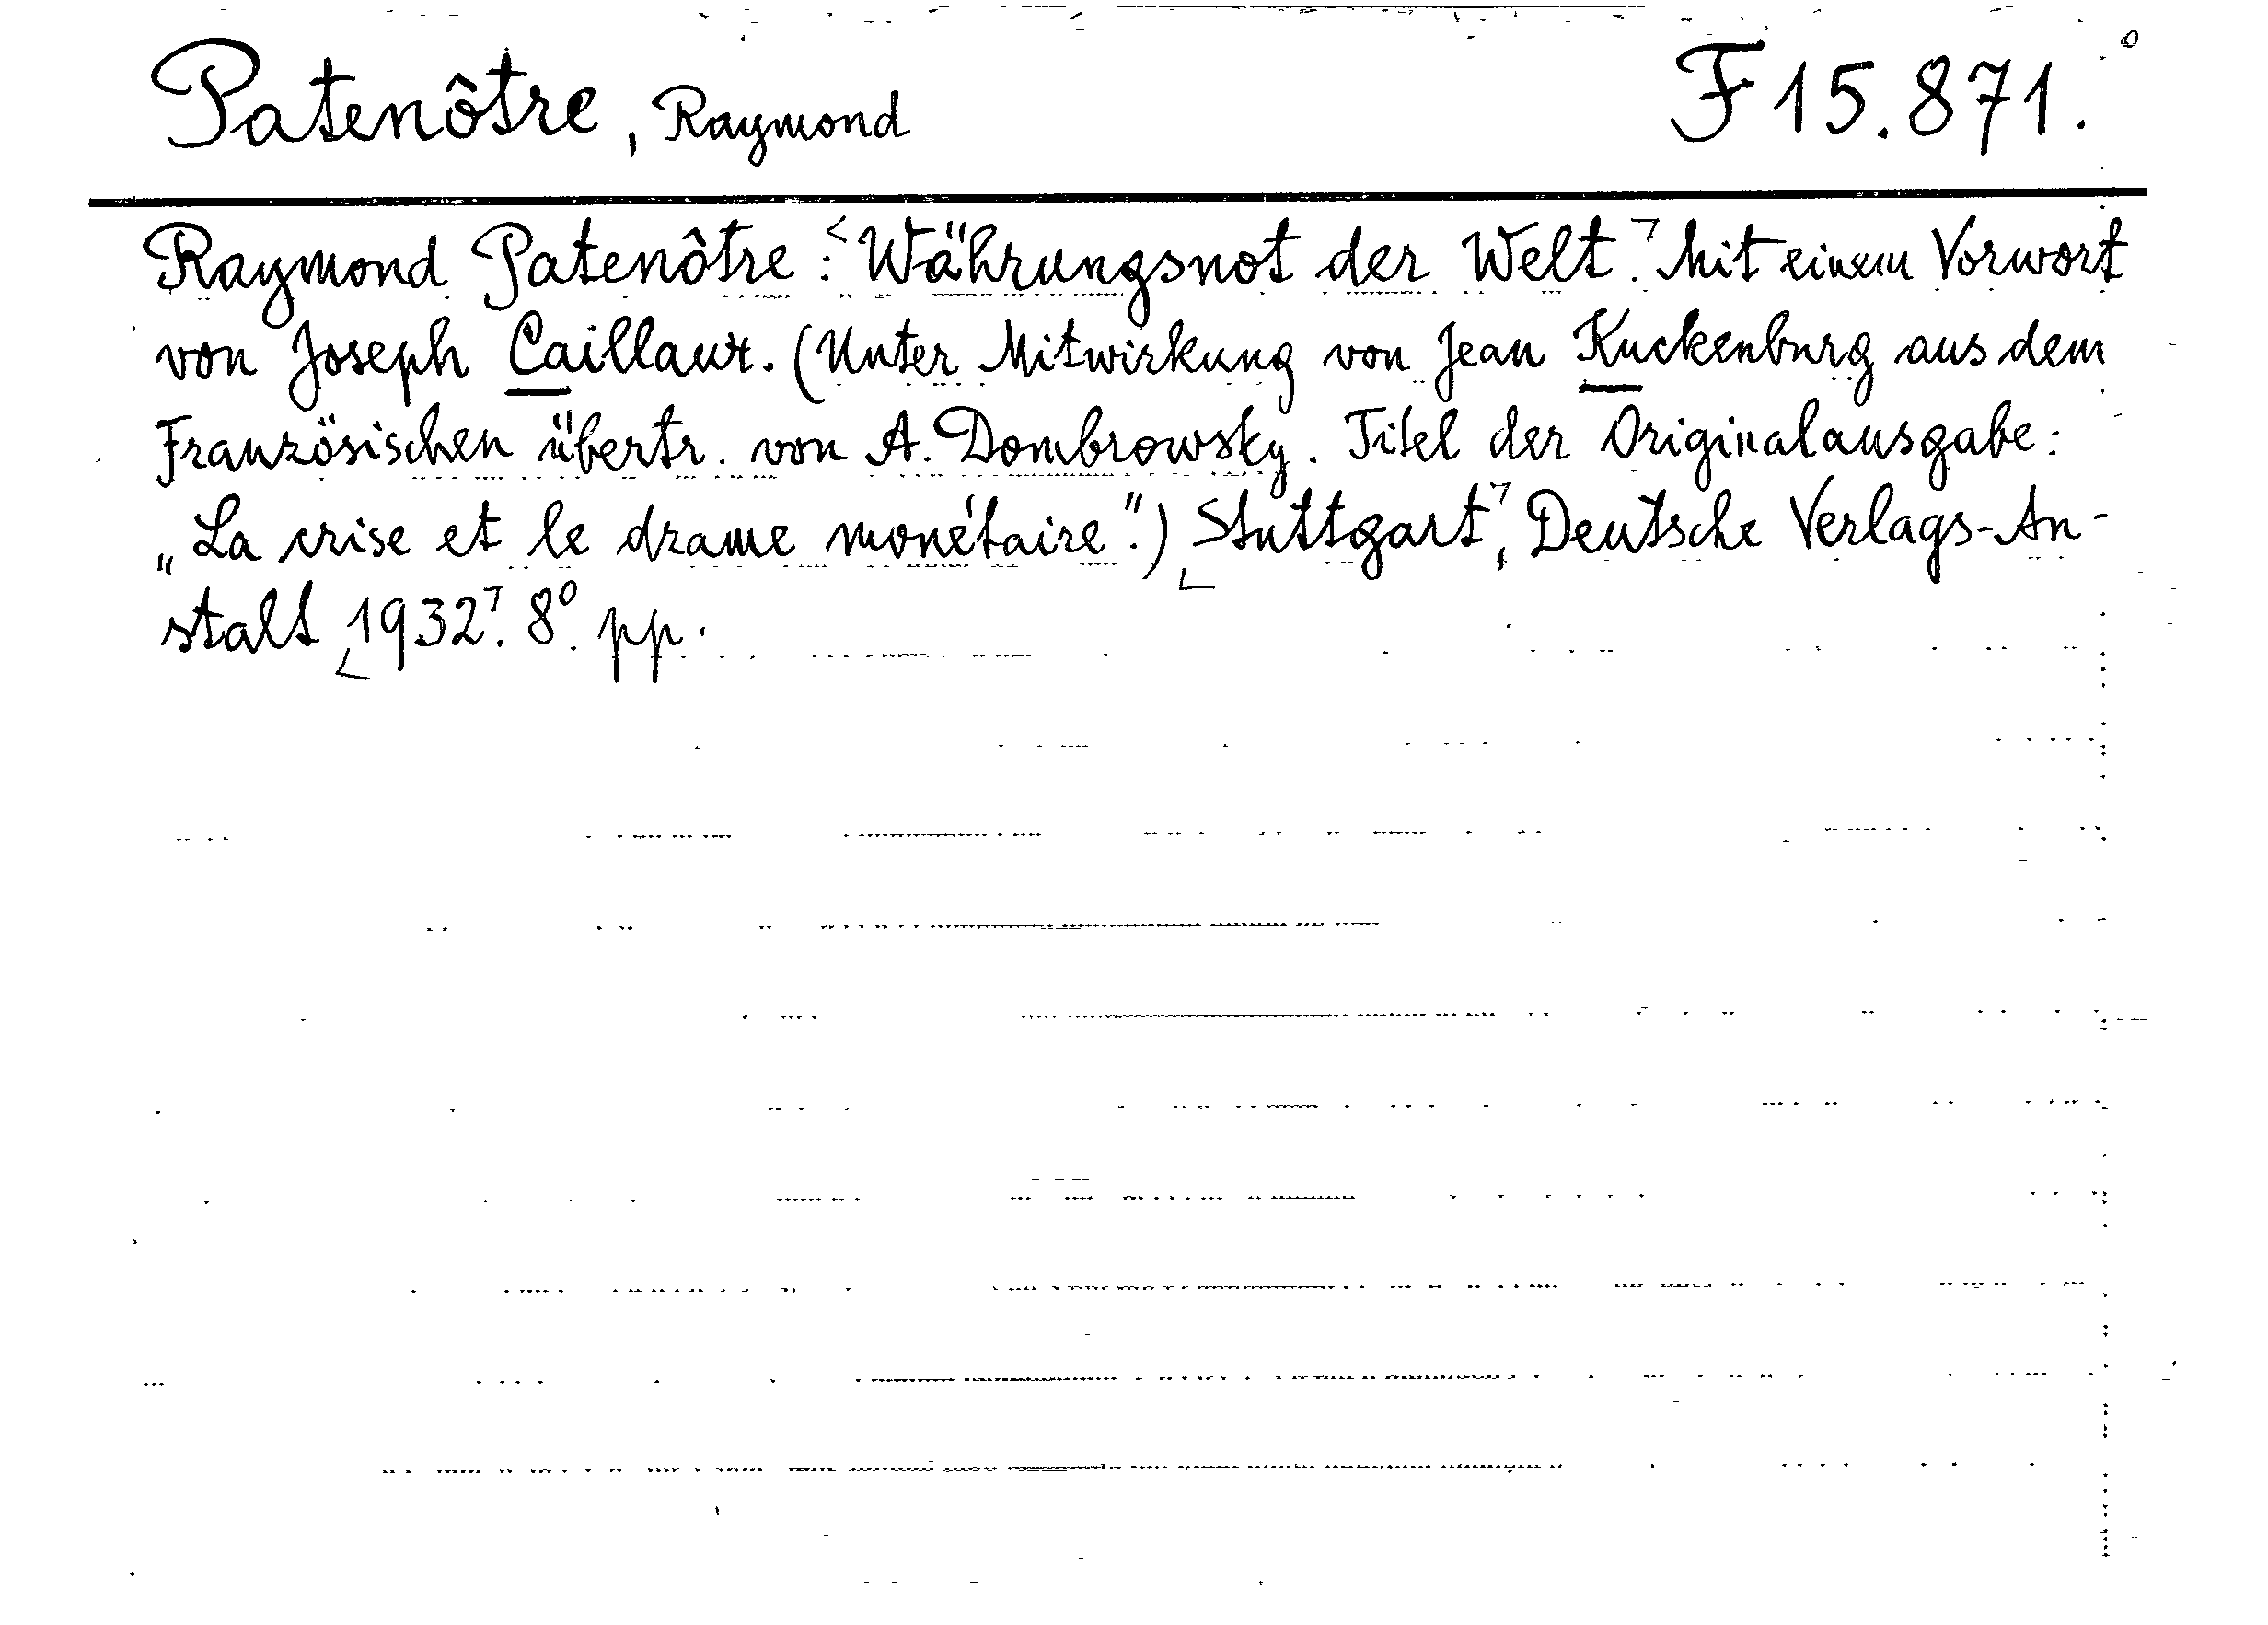 Patenôtre, Raymond F 15.871.
Raymond Patenôtre: Währungsnot der Welt. Mit einem Vorwort
von Joseph Caillaux. (Unter Mitwirkung von Jean Kuckenburg aus dem
Französischen übertr. von A. Dombrowsky. Titel der Originalausgabe:
„La crise et le drame monétaire".) Stuttgart, Deutsche Verlags-An-
stalt 1932. 8°. pp.